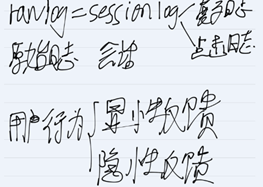 raw log = session log 展示日志
点击日志
原始日志 会话
用户行为 显性反馈
隐性反馈